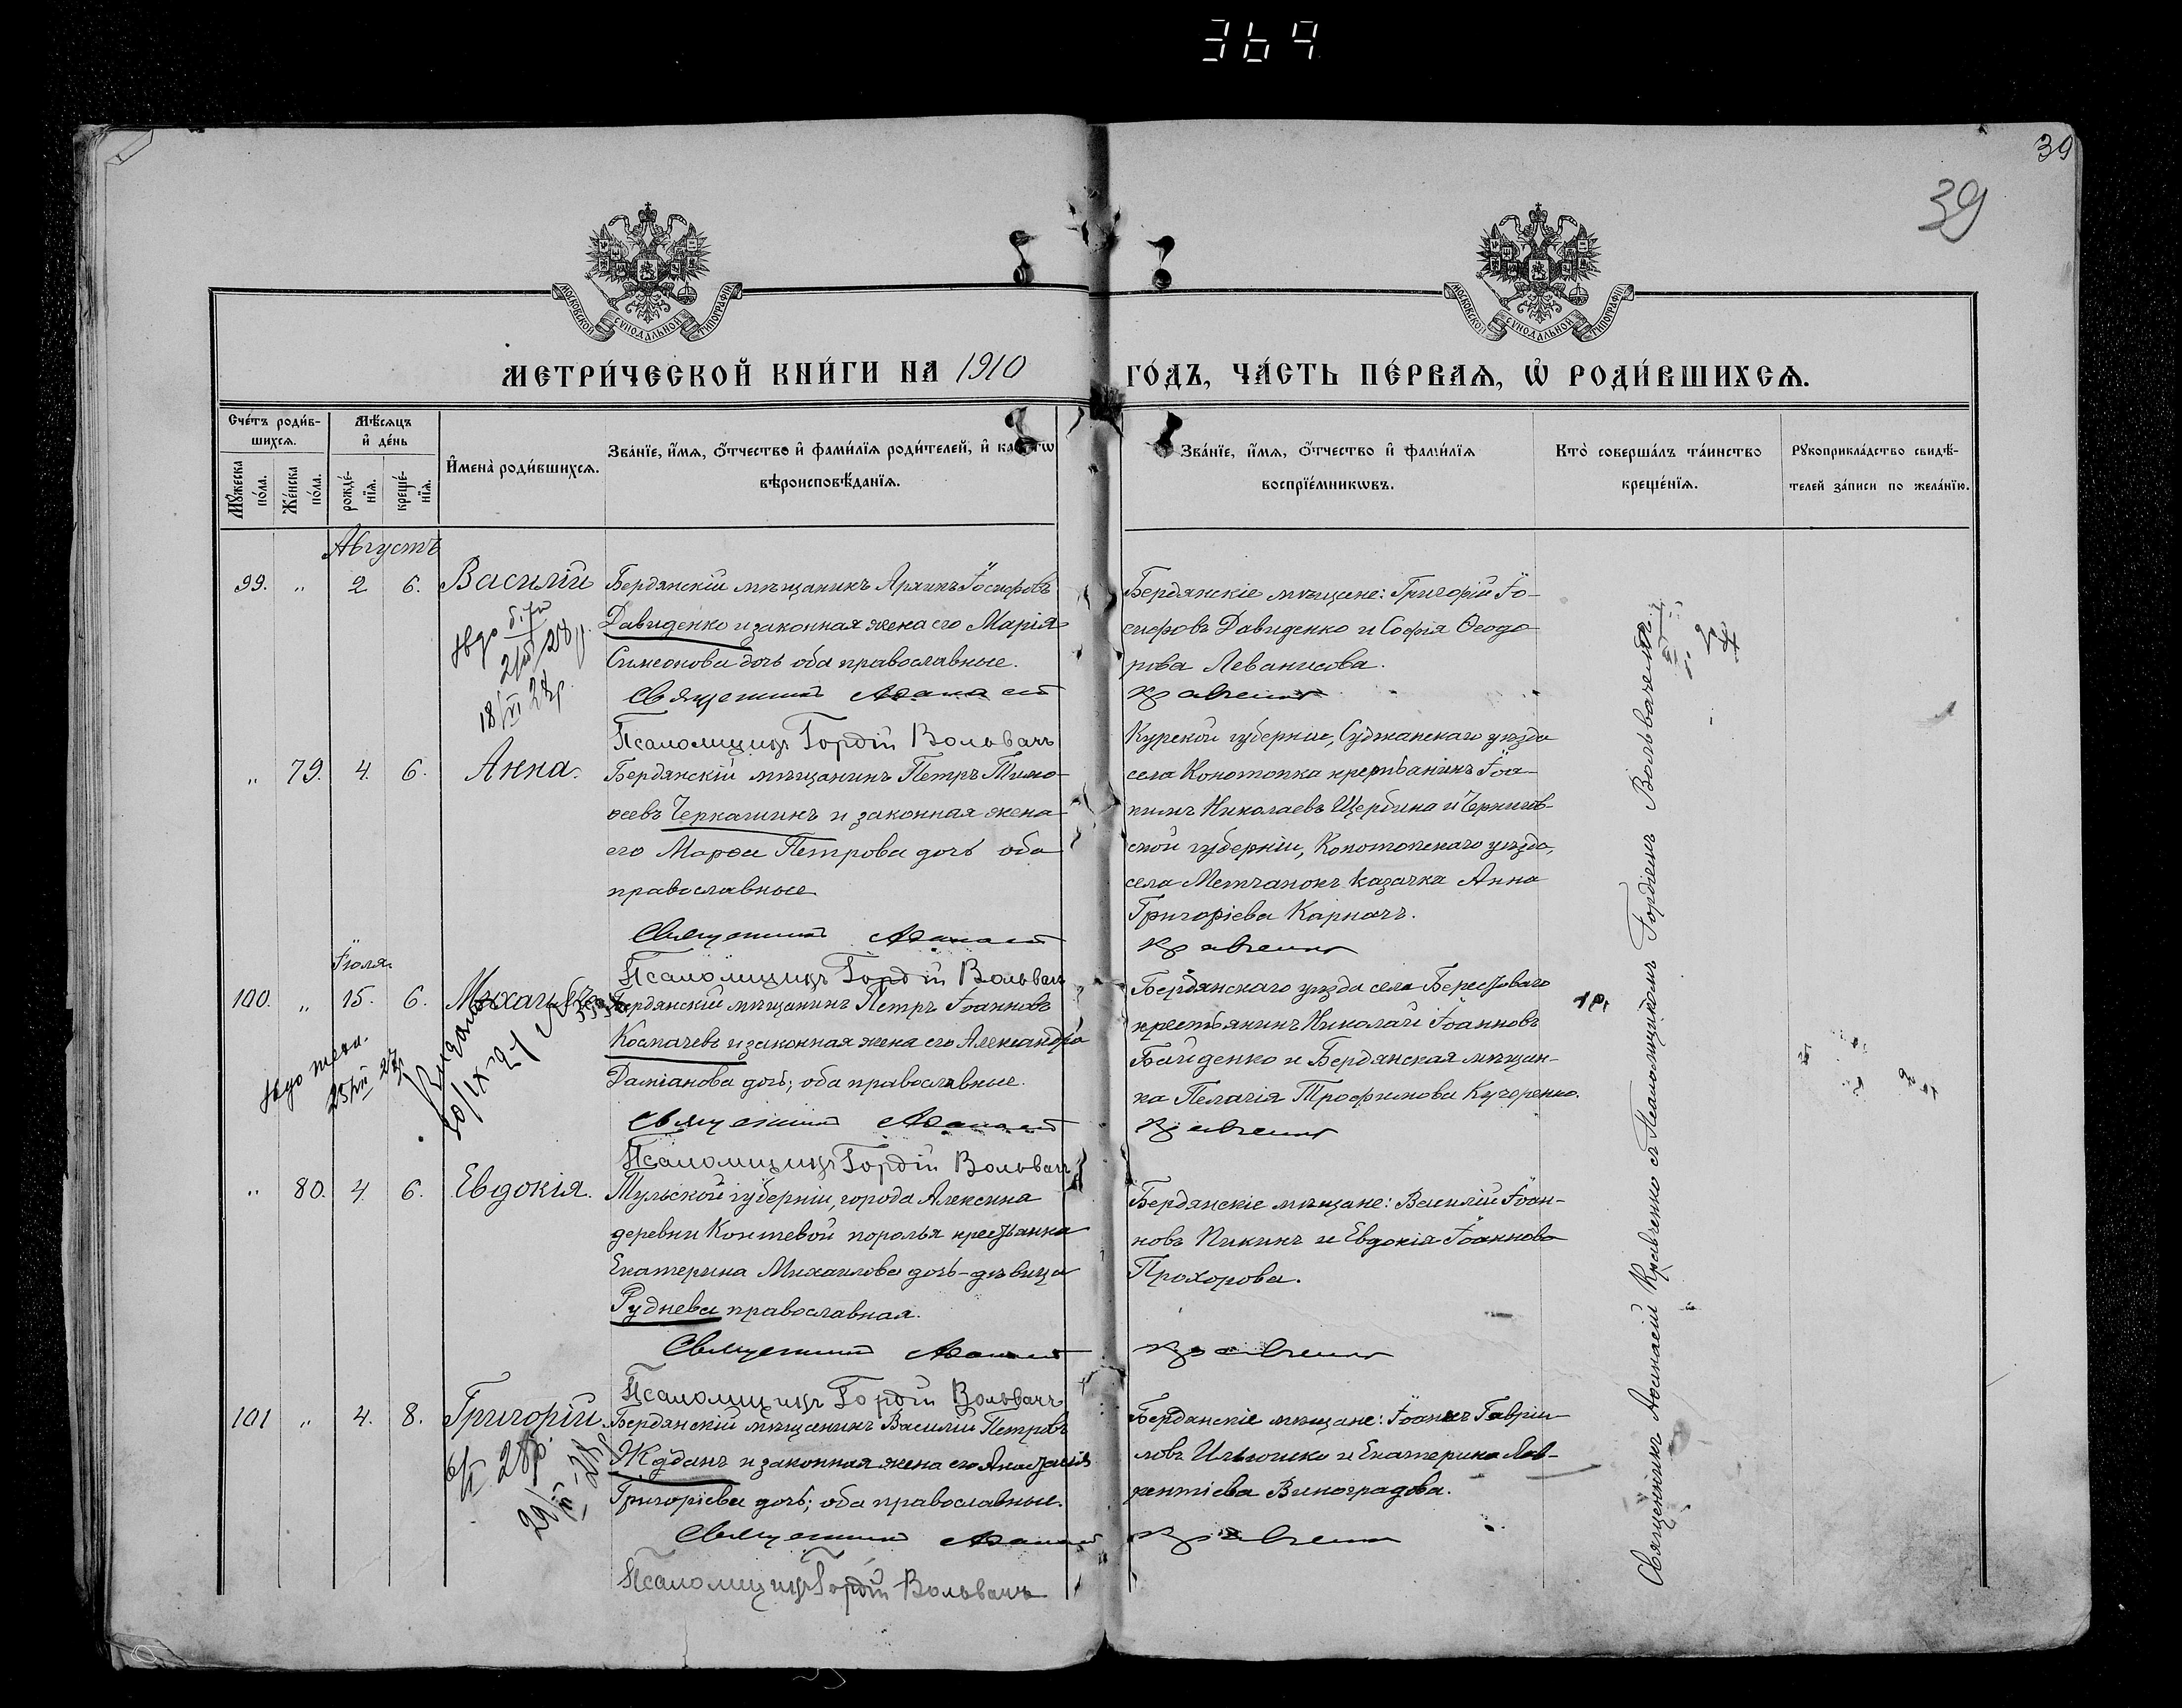 369
39
39
МОСКОВСКОЙ СѴНОДАЛЬНОЙ ТИПОГРАФІИ
МОСКОВСКОЙ СѴНОДАЛЬНОЙ ТИПОГРАФІИ
МЕТРИ́ЧЕСКОЙ КНИ́ГИ НА 1910
ГО́ДЪ, ЧА́СТЬ ПЕ́РВАѦ, Ѡ҆ РОДИ́ВШИХСѦ.
Сче́тъ роди́в-
шихсѧ.
Мꙋ́жеска
по́ла.
Же́нска
по́ла.
Мѣ́сѧцъ
и҆ де́нь
рожде́-
нїѧ.
креще́-
нїѧ.
И҆мена̀ роди́вшихсѧ.
Зва́нїе, и҆́мѧ, ѻ҆́тчество и҆ фами́лїѧ роди́телей, и҆
вѣроисповѣ́данїѧ.
Зва́нїе, и҆́мѧ, ѻ҆́тчество и҆ фами́лїѧ
воспрїе́мникѡвъ.
Кто̀ соверша́лъ та́инство
креще́нїѧ.
Рꙋкоприкла́дство свидѣ́-
телей за́писи по жела́нїю.
Августъ
99. „ 2 6. Василій
Бердянскій мѣщанинъ Архипъ Іосифовъ
Давиденко и законная жена его Марія
Симеонова дочь оба православные.
Священникъ Афанасій
Псаломщикъ Гордій Вольвачъ
Бердянскіе мѣщане: Григорій Іо-
сифовъ Давиденко и Софія Ѳеодо
рова Леванисова.
Кравченко
18/VI 27р.
„ 79. 4. 6. Анна.
Бердянскій мѣщанинъ Петръ Тимо-
ѳеевъ Черкашинъ и законная жена
его Марфа Петрова дочь оба
православные
Священникъ Афанасій
Псаломщикъ Гордій Вольвачъ
Курской губерніи, Суджанскаго уѣзда
села Конотопка крестьянинъ Іоа-
кимъ Николаевъ Щербина и Чернигов-
ской губерніи, Конотопскаго уѣзда,
села казачка Анна
Григоріева Карпачъ.
Кравченко
Іюля
100. „ 15. 6. Михаилъ
25/VII 27р
20/IX-27
Бердянскій мѣщанинъ Петръ Іоанновъ
Космачевъ и законная жена его Александра
Даміанова дочь; оба православные.
Священникъ Афанасій
Псаломщикъ Гордій Вольвачъ
Бердянскаго уѣзда села Берестоваго
крестьянинъ Николай Іоанновъ
Байденко и Бердянская мѣщан-
ка Пелагія Трофимова Кучеренко.
Кравченко
„ 80. 4. 6. Евдокія.
Тульской губерніи, города Алексина
деревни крестьянка
Екатерина Михаилова дочь-дѣвица
Руднева православная.
Священникъ Афанасій
Псаломщикъ Гордій Вольвачъ
Бердянскіе мѣщане: Василій Іоан-
новъ Пикинъ и Евдокія Іоаннова
Прохорова.
Кравченко
101 „ 4. 8. Григорій.
Бердянскій мѣщанинъ Василій Петровъ
Жданъ и законная жена его Анастасія
Григоріева дочь; оба православные.
Священникъ Афанасій
Псаломщикъ Гордій Вольвачъ
Бердянскіе мѣщане: Іоаннъ Гавріи-
ловъ Ильюшко и Екатерина Лав-
рентіева Виноградова.
Кравченко
Священникъ Аѳанасій Кравченко съ Псаломщикомъ Гордіемъ Вольвачемъ.